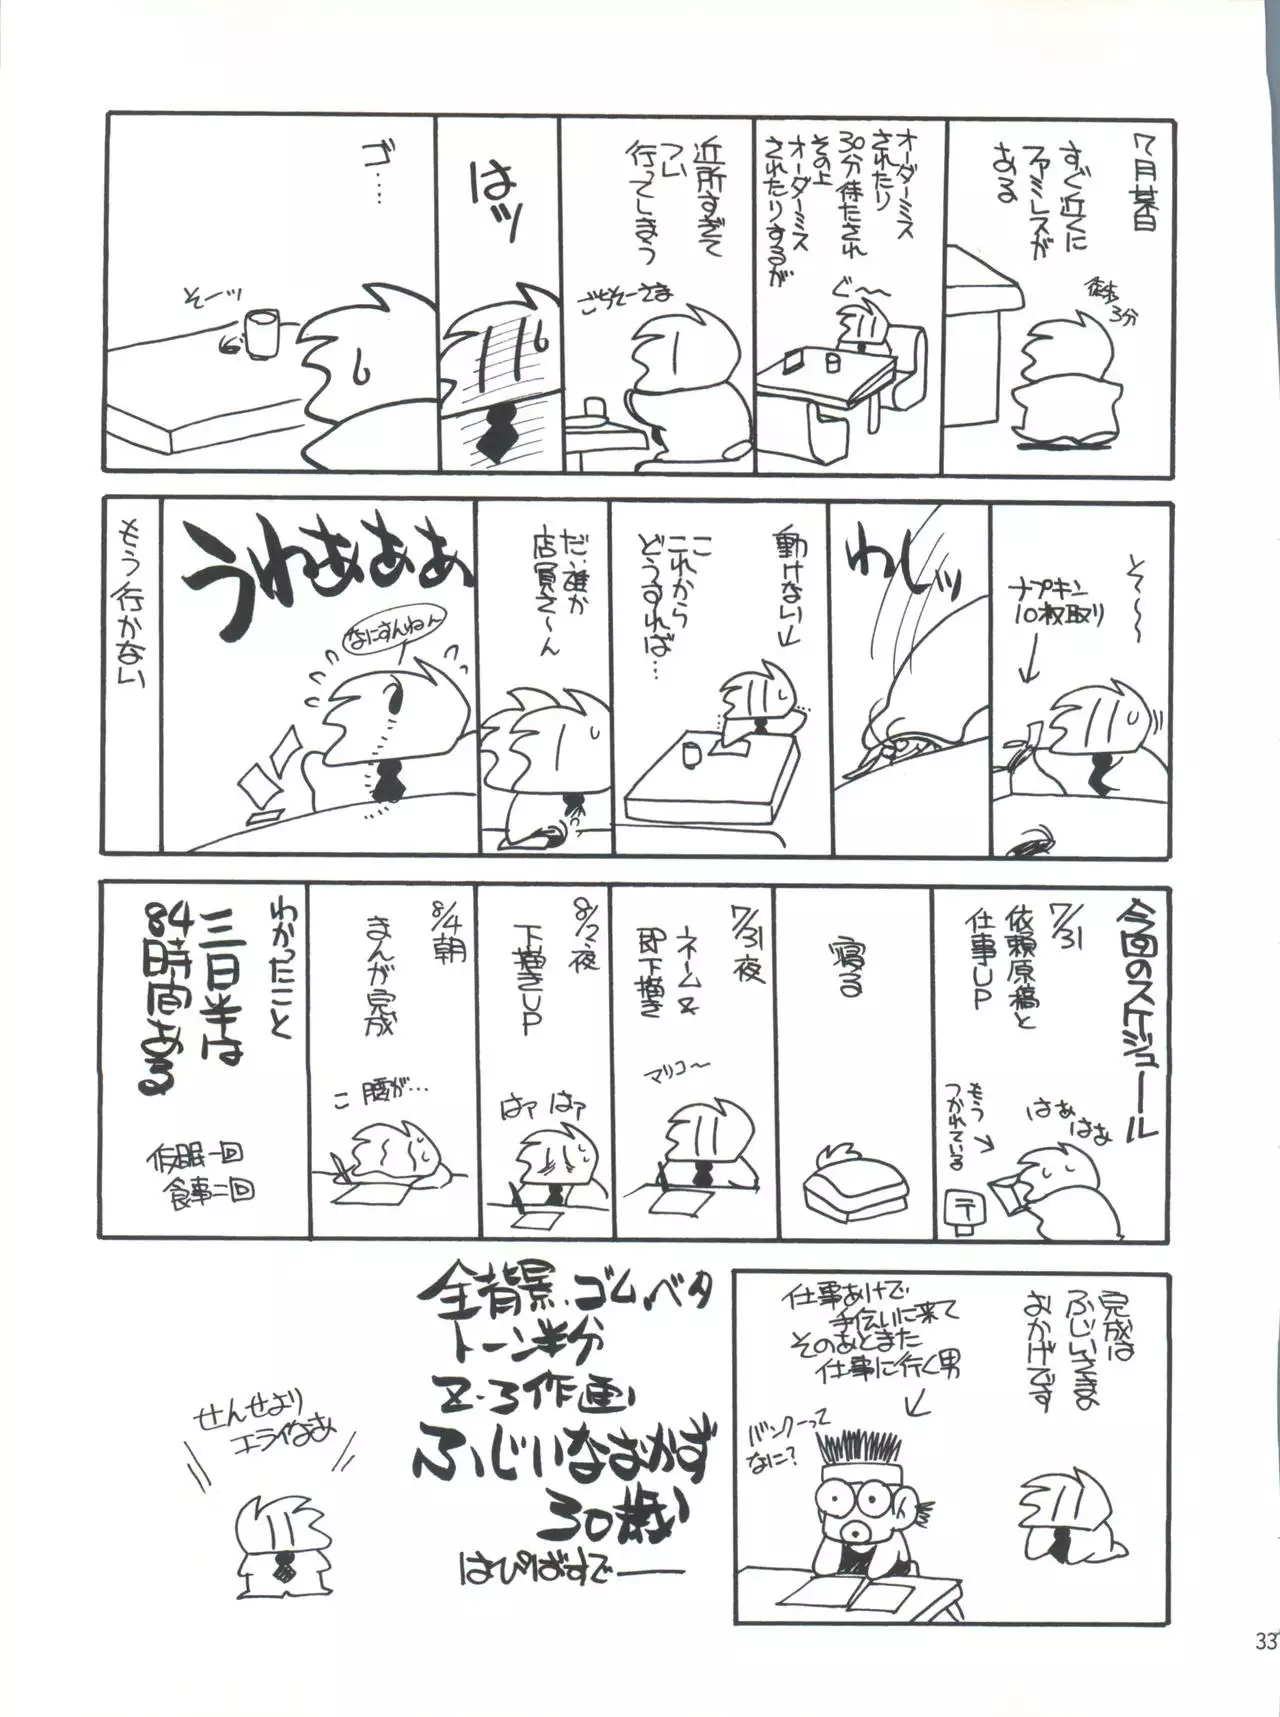 7月某日
すぐ近くに
ファミレスが
ある
徒歩
3分
オーダーミス
されたり
30分待たされ
その上
オーダーミス
されたりするが
ぐ〜〜
近所すぎて
つい
行ってしまう
ごちそーさま
はッ
ゴ…
そーッ
そ〜〜
ナプキン
10枚取り
わしッ
動けない
こ
これから
どうすれば…
だ、誰か
店員さ〜ん
うわあああ
なにすんねん
もう行かない
今回のスケジュール
7/31
依頼原稿と
仕事UP
はぁ
はぁ
もう
つかれている
〒
寝る
7/31夜
ネーム&
即下描き
マリコ〜
8/2夜
下描きUP
はァ はァ
8/4朝
まんが完成
こ 腰が…
わかったこと
三日半は
84時間ある
仮眠一回
食事二回
完成は
ふじいさまの
おかげです
仕事あけで
手伝いに来て
そのあとまた
仕事に行く男
バンクーって
なに?
全背景、ゴム、ベタ
トーン半分
2・3作画
ふじいなおかず
30歳
はぴばすでー
せんせより
エライなあ
33